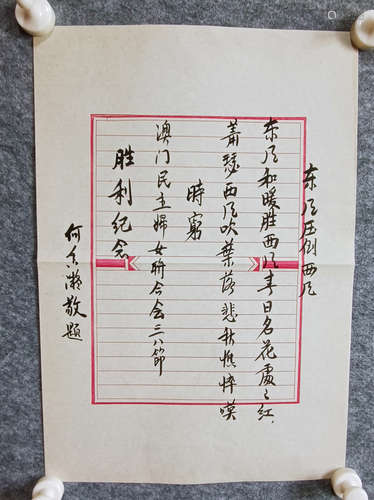 东风压倒西风
东风和暖胜西风春日名花处々红，
萧瑟西风吹葉落悲秋憔悴嘆
時窮
澳门民主婦女聯合会三八節
胜利纪念
何香凝敬题